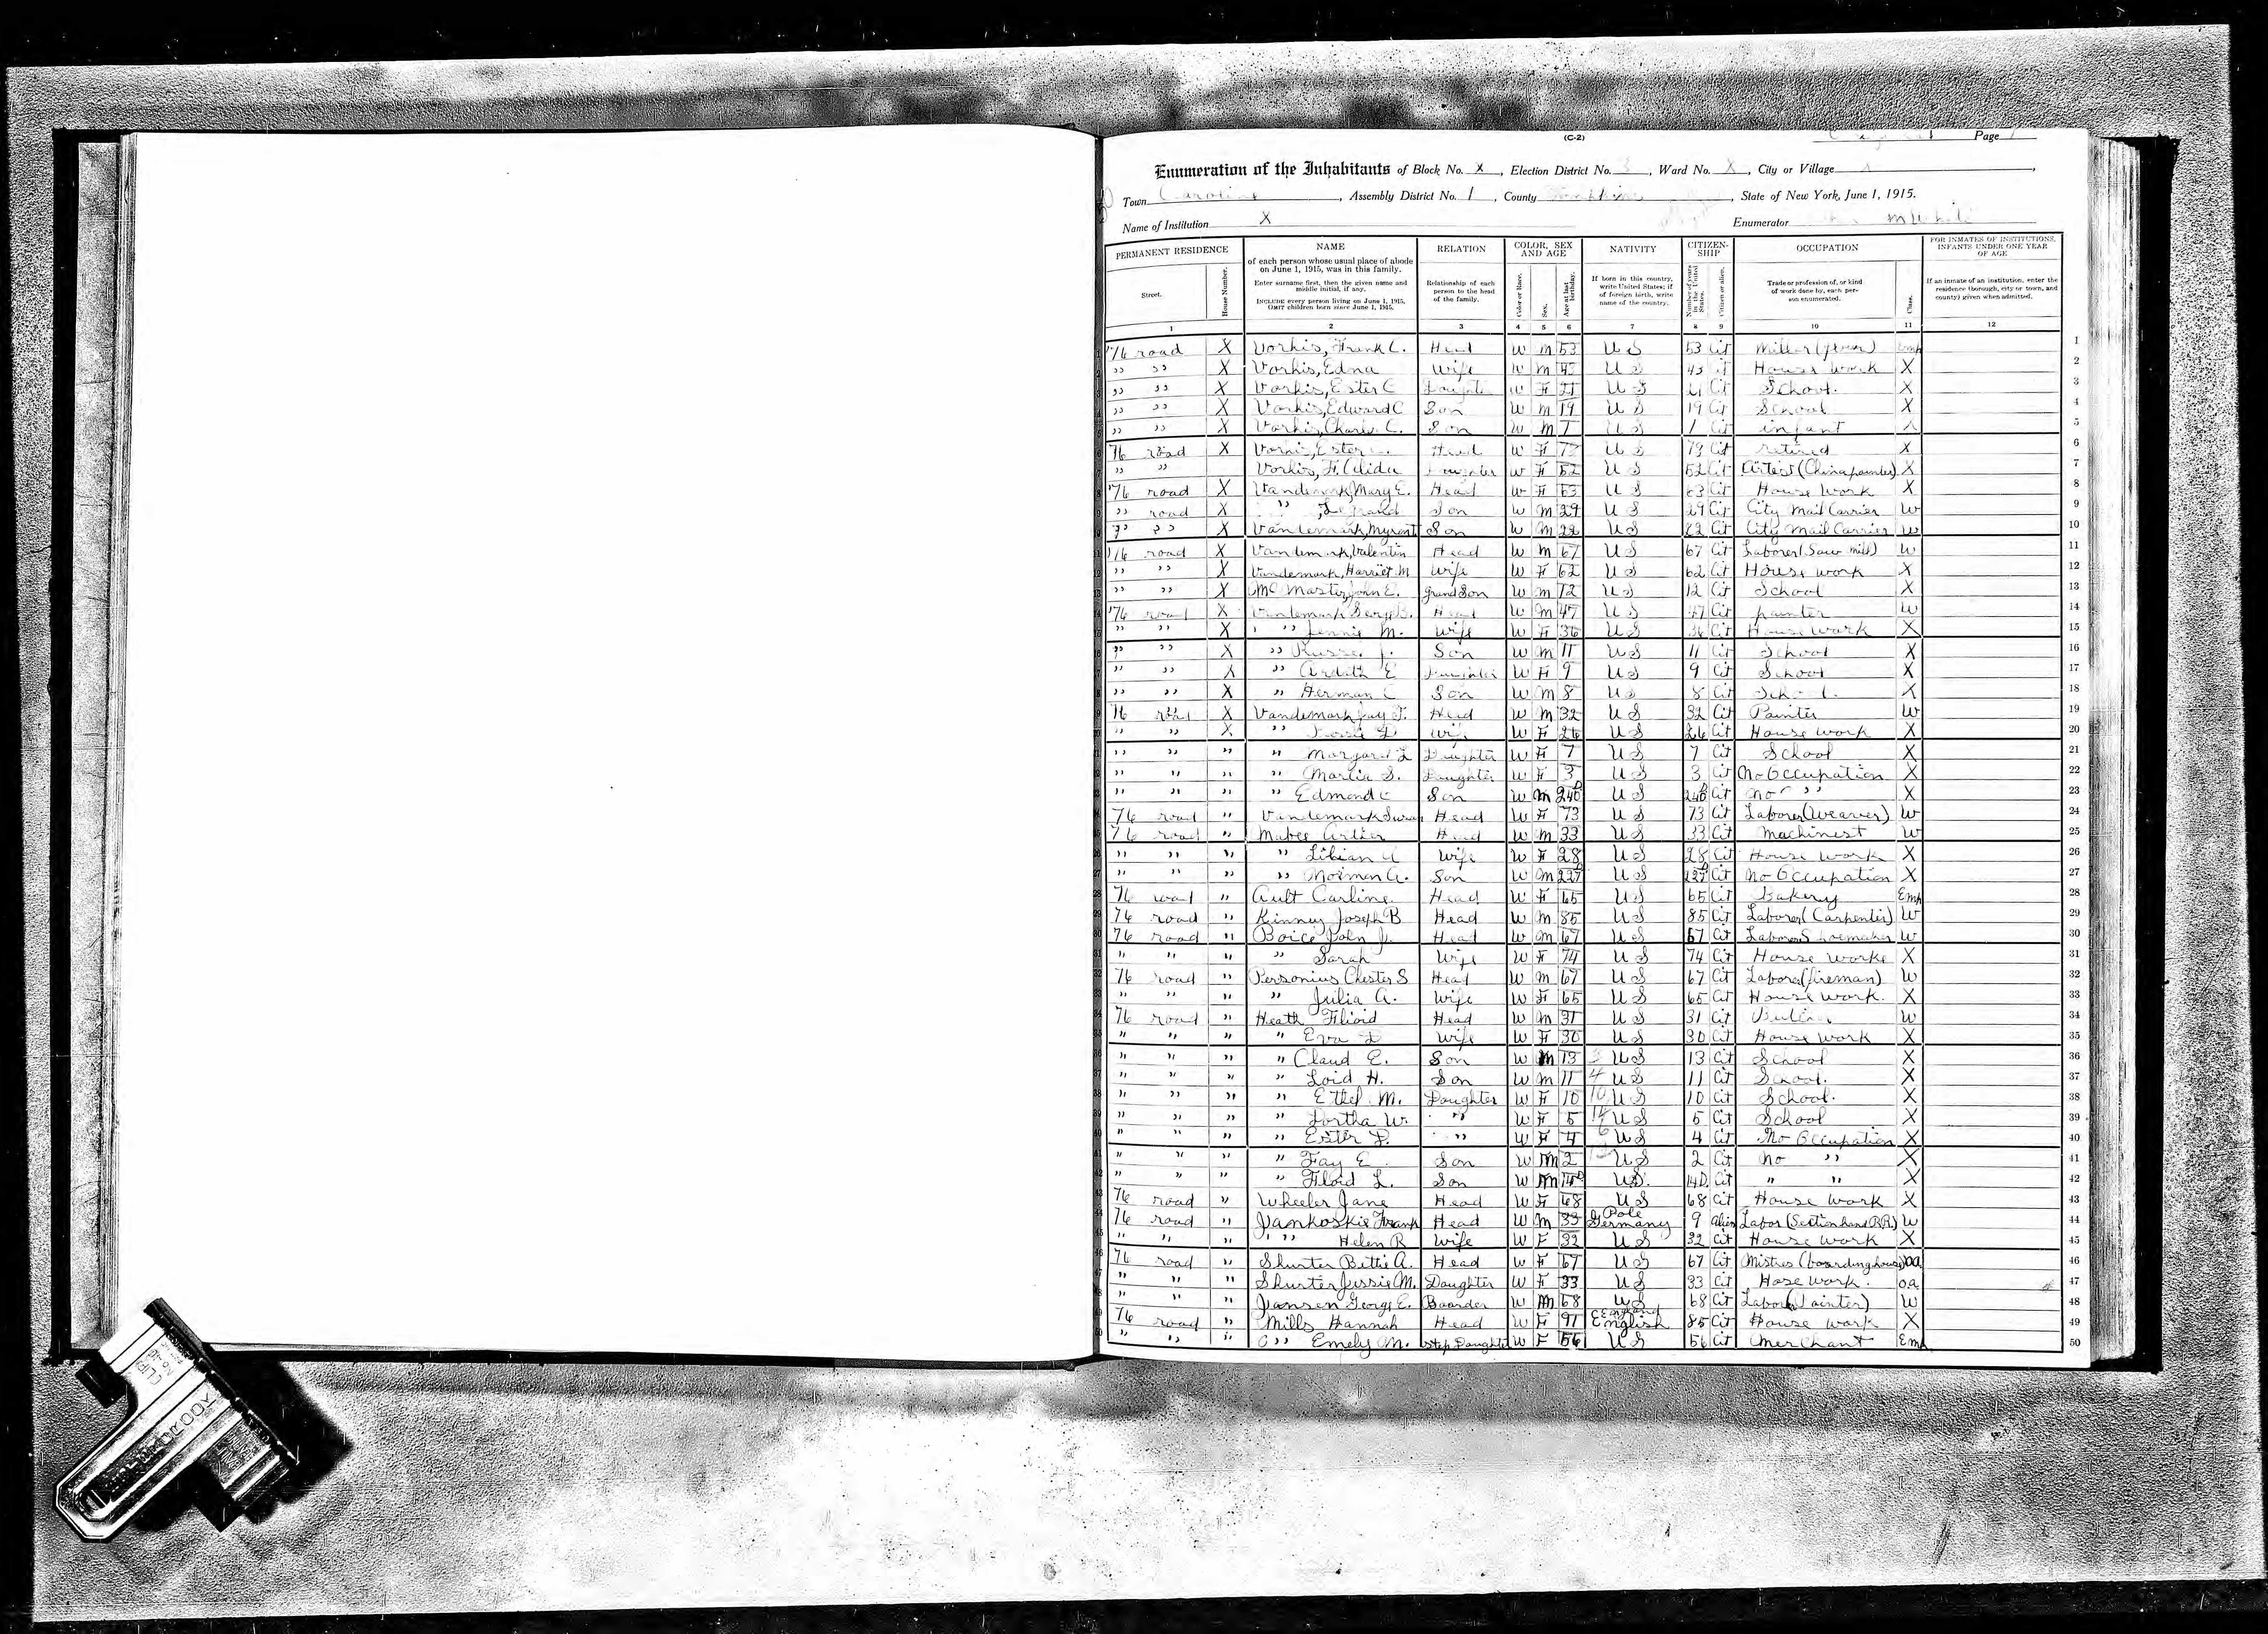 (C-2)
Page 1
Enumeration of the Inhabitants of Block No. X, Election District No. 3, Ward No. X, City or Village
Town Caroline, Assembly District No. 1, County Tompkins, State of New York, June 1, 1915.
Name of Institution X Enumerator
PERMANENT RESIDENCE NAME RELATION COLOR, SEX AND AGE NATIVITY CITIZENSHIP OCCUPATION FOR INMATES OF INSTITUTIONS, INFANTS UNDER ONE YEAR OF AGE
Street. House Number. of each person whose usual place of abode on June 1, 1915, was in this family. Enter surname first, then the given name and middle initial, if any. INCLUDE every person living on June 1, 1915. OMIT children born since June 1, 1915. Relationship of each person to the head of the family. Color or Race. Sex. Age at last birthday. If born in this country, write United States; if of foreign birth, write name of the country. Number of years in the United States. Citizen or alien. Trade or profession of, or kind of work done by, each person enumerated. Class. If an inmate of an institution, enter the residence (borough, city or town, and county) given when admitted.
1 2 3 4 5 6 7 8 9 10 11 12
76 road X Vorhis, Frank C. Head W m 53 U S 53 Cit Miller Emp 1
" " X Vorhis, Edna Wife W m U S 43 Cit House Work X 2
" " X Vorhis, Ester C Daughter W F 21 U S 21 Cit School. X 3
" " X Vorhis, Edward C Son W m 19 U S 19 Cit School X 4
" " X Vorhis, Charls C. Son W m 1 U S 1 Cit infant X 5
76 road X Ester Head W F U S 79 Cit retired X 6
" " Vorhis, F. Alida Daughter W F 52 U S 52 Cit Artest (China painter) X 7
'76 road X Vandemark, Mary E. Head W F 63 U S 63 Cit House Work X 8
" road X " , Legrand Son W m 29 U S 29 Cit City Mail Carrier W 9
" " X Vandemark, Myrant Son W m 22 U S 22 Cit City Mail Carrier W 10
'76 road X Vandemark, Valentin Head W m 67 U S 67 Cit Laborer (Saw mill) W 11
" " X Vandemark, Harriet M Wife W F 62 U S 62 Cit House work X 12
" " X McMaster, John E. Grand Son W m 12 U S 12 Cit School X 13
'76 road X Vandemark B. Head W m 47 U S 47 Cit painter W 14
" " X " Jennie M. Wife W F 36 U S 36 Cit House work X 15
" " X " J. Son W m 11 U S 11 Cit School X 16
" " X " Ardith E Daughter W F 9 U S 9 Cit School X 17
" " X " Herman C Son W m 8 U S 8 Cit School. X 18
76 road X Vandemark Jay T. Head W m 32 U S 32 Cit Painter W 19
" " X " Wife W F 26 U S 26 Cit House work X 20
" " " " Margaret L Daughter W F 7 U S 7 Cit School X 21
" " " " Martia S. Daughter W F 3 U S 3 Cit No Occupation X 22
" " " " Edmond C Son W m 24D U S 24D Cit No " X 23
76 road " Vandemark Surah Head W F 73 U S 73 Cit Laborer (Weaver) W 24
76 road " Mabee Artier Head W m 33 U S 33 Cit Machinest W 25
" " " " Libian A Wife W F 28 U S 28 Cit House work X 26
" " " " Norman A. Son W m U S Cit No Occupation X 27
76 road " Ault Carline Head W F 65 U S 65 Cit Bakery Emp 28
76 road " Kinney Joseph B Head W m 85 U S 85 Cit Laborer (Carpenter) W 29
76 road " Boice John J. Head W m 67 U S 67 Cit Laborer Shoemaker W 30
" " " " Sarah Wife W F 74 U S 74 Cit House Worke X 31
76 road " Personius Chester S Head W m 67 U S 67 Cit Laborer (fireman) W 32
" " " " Julia A. Wife W F 65 U S 65 Cit House work. X 33
76 road " Heath Floid Head W m 31 U S 31 Cit W 34
" " " " Eva L Wife W F 30 U S 30 Cit House Work X 35
" " " " Claud E. Son W m 13 U S 13 Cit School X 36
" " " " Loid H. Son W m 11 4 U S 11 Cit School. X 37
" " " " Ethel M. Daughter W F 10 10 U S 10 Cit School. X 38
" " " " Dortha W. " W F 5 14 U S 5 Cit School X 39
" " " " Ester L. " W F 4 6 U S 4 Cit No Occupation X 40
" " " " Fay E Son W m 2 U S 2 Cit No " X 41
" " " " Floid L. Son W m 14D U S. 14D. Cit " " X 42
76 road " Wheeler Jane Head W F 68 U S 68 Cit House Work X 43
76 road " Jankoskie Frank Head W m 33 Pole Germany 9 Alien Labor (Section hand R.R.) W 44
" " " " Helen R Wife W F 32 U S 32 Cit House Work X 45
76 road " Shurter Bettie A. Head W F 67 U S 67 Cit Mistres (boarding house) O.A. 46
" " " Shurter Jessie M. Daughter W F 33 U S 33 Cit Hose work. O.A. 47
" " " Jansen George E. Boarder W m 68 U S 68 Cit Laborer (Painter) W 48
76 road " Mills Hannah Head W F 91 England English 85 Cit House work X 49
" " " " Emely M. Step Daughter W F 56 U S 56 Cit Merchant Emp 50